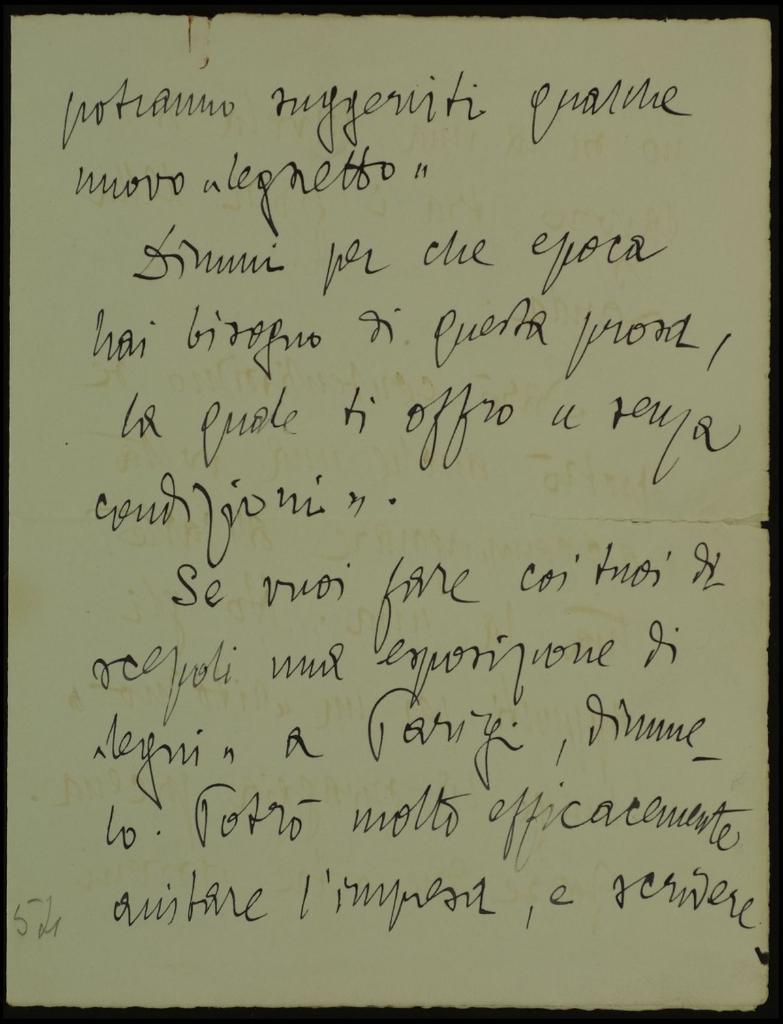 potranno suggerirti qualche
nuovo „legnetto"
Dimmi per che epoca
hai bisogno di questa prosa,
la quale ti offro „ senza
condizioni".
Se vuoi fare coi tuoi di
scepoli una esposizione di
„legni" a Parigi, dimme_
lo. Potrò molto efficacemente
aiutare l'impresa, e scrivere
54